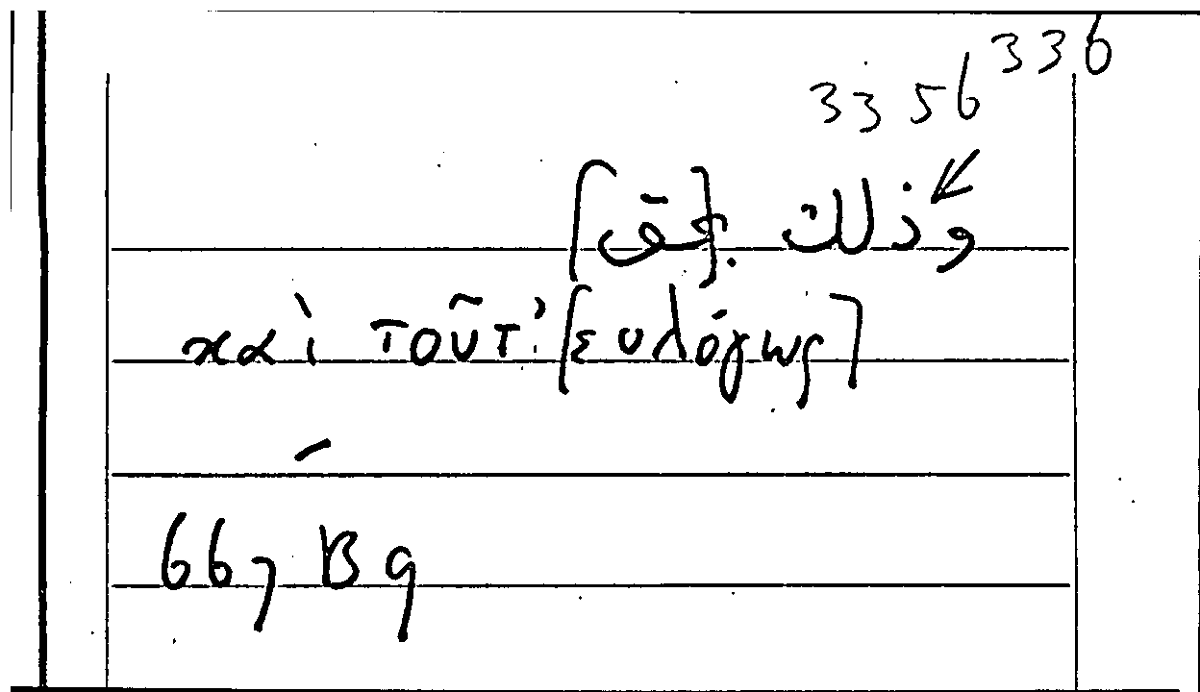 336
3356
وذلك [بحق]
καὶ τοῦτ' [ευλόγως]
667 B9